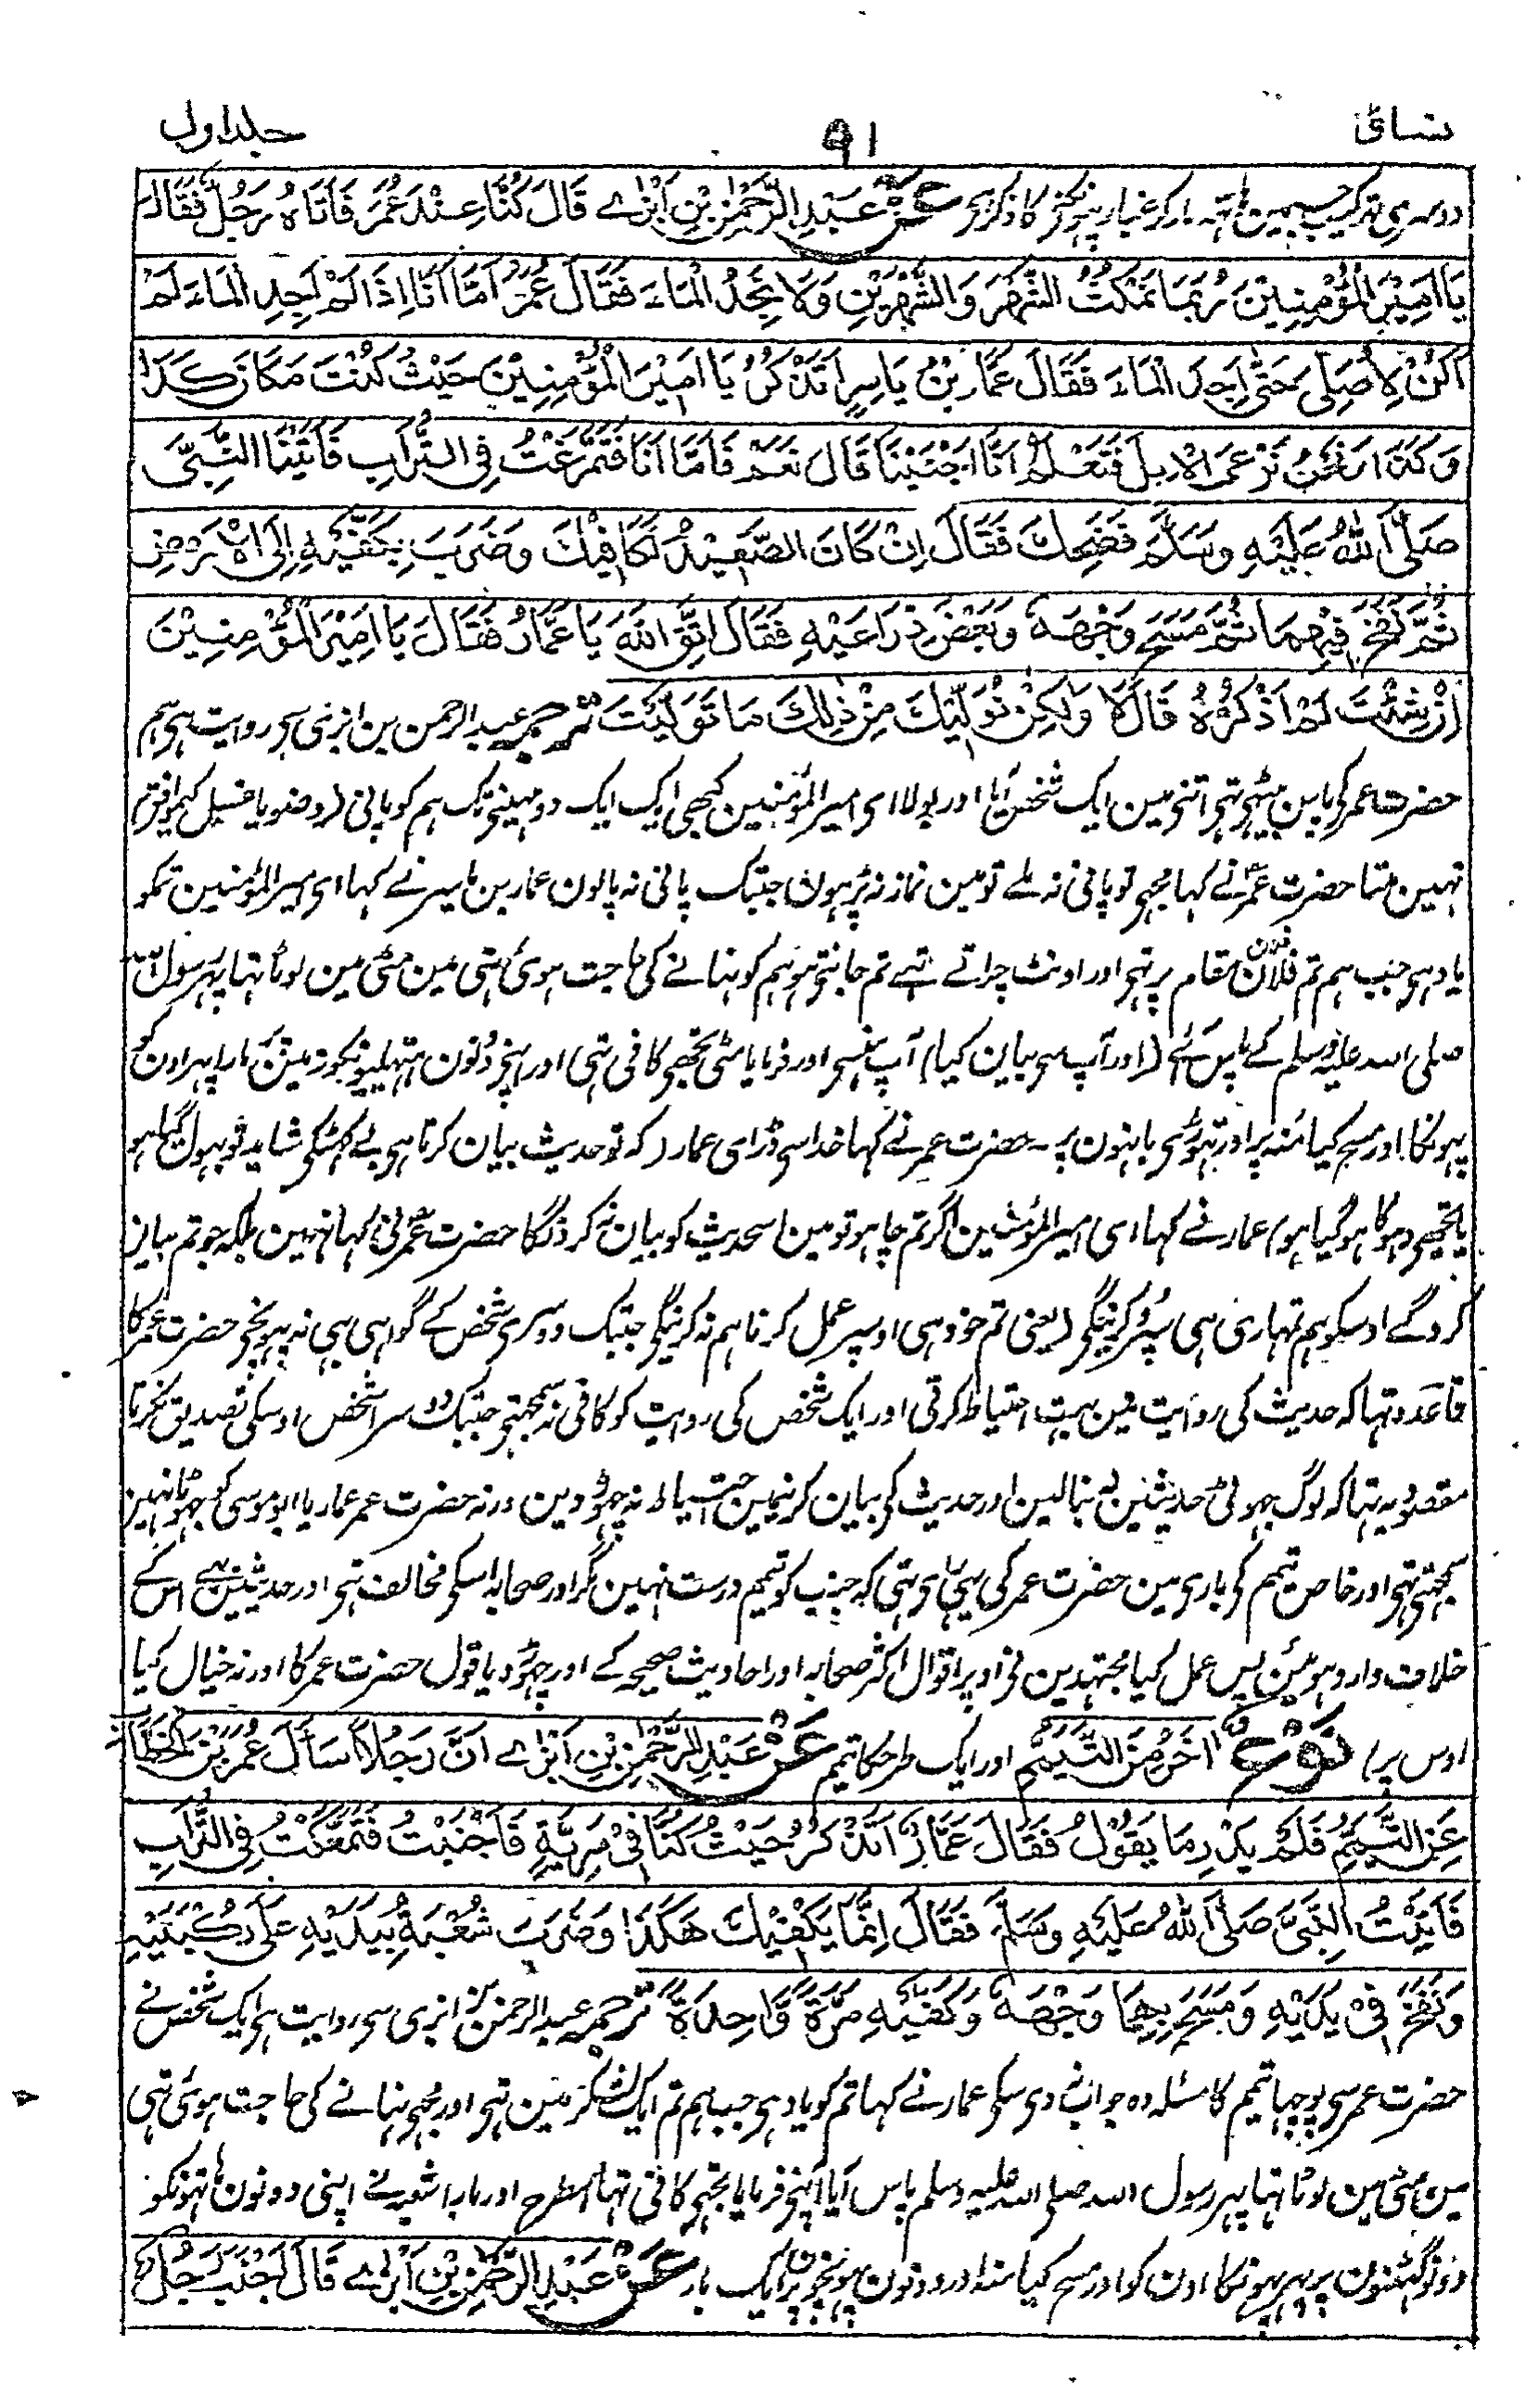 نسائی ۹۱ جلد اول
دوسری ترکیب تیمم مین ہاتہ مار کر غبار پہونکنے کا ذکر ہی عَنْ عَبْدِ الرَّحْمٰنِ بْنِ اَبْزٰے قَالَ كُنَّا عِنْدَ عُمَرَ فَاَتَاهُ رَجُلٌ فَقَالَ
يَا اَمِيْرَ الْمُؤْمِنِيْنَ رُبَمَا نَمْكُثُ الشَّهْرَ وَالشَّهْرَيْنِ وَلَا نَجِدُ الْمَاءَ فَقَالَ عُمَرُ اَمَّا اَنَا اِذَا لَمْ اَجِدِ الْمَاءَ لَمْ
اَكُنْ لِاُصَلِّىَ حَتّٰى اَجِدَ الْمَاءَ فَقَالَ عَمَّارُ بْنُ يَاسِرٍ اَتَذْكُرُ يَا اَمِيْرَ الْمُؤْمِنِيْنَ حَيْثُ كُنْتَ مَكَانَ كَذَا
وَكَذَا وَنَحْنُ نَرْعَى الْاِبِلَ فَتَعْلَمُ اَنَّا اَجْنَبْنَا قَالَ نَعَمْ فَاَمَّا اَنَا فَتَمَرَّغْتُ فِى التُّرَابِ فَاَتَيْنَا النَّبِىَّ
صَلَّى اللهُ عَلَيْهِ وَسَلَّمَ فَضَحِكَ فَقَالَ اِنْ كَانَ الصَّعِيْدُ لَكَافِيْكَ وَضَرَبَ بِكَفَّيْهِ اِلَى الْاَرْضِ
ثُمَّ نَفَخَ فِيْهِمَا ثُمَّ مَسَحَ وَجْهَهٗ وَبَعْضَ ذِرَاعَيْهِ فَقَالَ اتَّقِ اللهَ يَا عَمَّارُ فَقَالَ يَا اَمِيْرَ الْمُؤْمِنِيْنَ
اِنْ شِئْتَ لَمْ اَذْكُرْهُ قَالَ لَا وَلٰكِنْ نُوَلِّيْكَ مِنْ ذٰلِكَ مَا تَوَلَّيْتَ ترجمہ عبد الرحمن بن ابزٰی سی روایت ہی ہم
حضرت عمر کی پاس بیٹہی تہی اتنی مین ایک شخص آیا اور بولا ای امیر المؤمنین کبہی ایک ایک دو مہینی تک ہم کو پانی (وضو یا غسل کیموافق)
نہین ملتا حضرت عمرؓ نے کہا مجہی تو پانی نہ ملے تو مین نماز نہ پڑہون جبتک پانی نہ پالون عمار بن یاسر نے کہا ای امیر المؤمنین تمکو
یاد ہی جب ہم تم فلان مقام پر تہی اور اونٹ چراتے تہے تم جانتی ہو ہم کو نہانے کی حاجت ہوئی تہی مین مٹی مین لوٹا تہا پہر رسول اللہ
صلی اللہ علیہ وسلم کے پاس آئے (اور آپ سی بیان کیا) آپ ہنسی اور فرمایا مٹی تجھی کافی تہی اور اپنی دونون ہتہلیونکو زمین پر مارا پہر اون کو
پہونکا اور مسح کیا منہ پر اور تہوڑی باہنون پر۔ حضرت عمر نے کہا خدا سی ڈر ای عمار (کہ تو حدیث بیان کرتا ہی بے کہٹکی شاید تو بہول گیا ہو
یا تجھی دہوکا ہوگیا ہو) عمار نے کہا ای امیر المؤمنین اگر تم چاہو تو مین اسحدیث کو بیان نہ کرونگا حضرت عمرؓ نی کہا نہین بلکہ جو تم بیان
کروگے اوسکو ہم تمہاری ہی سپرد کرینگی (یعنی تم خود ہی اوسپر عمل کرنا ہم نہ کرینگی جبتک دوسری شخص کے گواہی بہی نہ پہونچی حضرت عمر کا
قاعدہ تہا کہ حدیث کی روایت مین بہت احتیاط کرتی اور ایک شخص کی روایت کو کافی نہ سمجہتی جبتک دوسرا شخص اوسکی تصدیق نکرتا
مقصود یہ تہا کہ لوگ جہوٹی حدیثین نہ بنالین اور حدیث کی بیان کرنیمین احتیاط نہ چہوڑ دین ورنہ حضرت عمر عمار یا ابو موسی کو جہوٹا نہین
سمجہتی تہی اور خاص تیمم کی باری مین حضرت عمر کی یہی رائ تہی کہ جنب کو تیمم درست نہین مگر اور صحابہ اسکی مخالف تہی اور حدیثین بہی اس کے
خلاف وارد ہوئین پس عمل کیا مجتہدین نی اوپر اقوال اکثر صحابہ اور احادیث صحیحہ کے اور چہوڑ دیا قول حضرت عمر کا اور نہ خیال کیا
اوس پر) نَوْعٌ اٰخَرُ مِنَ التَّيَمُّمِ اور ایک طرحکا تیمم عَنْ عَبْدِ الرَّحْمٰنِ بْنِ اَبْزٰے اَنَّ رَجُلًا سَاَلَ عُمَرَ بْنَ الْخَطَّابِ
عَنِ التَّيَمُّمِ فَلَمْ يَدْرِ مَا يَقُوْلُ فَقَالَ عَمَّارٌ اَتَذْكُرُ حَيْثُ كُنَّا فِىْ سَرِيَّةٍ فَاَجْنَبْتُ فَتَمَعَّكْتُ فِى التُّرَابِ
فَاَتَيْتُ النَّبِىَّ صَلَّى اللهُ عَلَيْهِ وَسَلَّمَ فَقَالَ اِنَّمَا يَكْفِيْكَ هٰكَذَا وَضَرَبَ شُعْبَةُ بِيَدَيْهِ عَلٰى رُكْبَتَيْهِ
وَنَفَخَ فِىْ يَدَيْهِ وَمَسَحَ بِهِمَا وَجْهَهٗ وَكَفَّيْهِ مَرَّةً وَّاحِدَةً ترجمہ عبد الرحمن بن ابزی سی روایت ہی ایک شخص نے
حضرت عمر سی پوچہا تیمم کا مسئلہ وہ جواب نہ دی سکی عمار نے کہا تم کو یاد ہی جب ہم تم ایک لشکر مین تہی اور مجہی نہانے کی حاجت ہوئی تہی
مین مٹی مین لوٹا تہا پہر رسول اللہ صلی اللہ علیہ وسلم پاس آیا آپنی فرمایا تجہی کافی تہا اسطرح اور مارا شعبہ نے اپنی دونون ہاتہونکو
دونو گہٹنون پر پہر پہونکا اون کو اور مسح کیا منہ اور دونون پہونچون پر ایک بار عَنْ عَبْدِ الرَّحْمٰنِ بْنِ اَبْزٰے قَالَ اَجْنَبَ رَجُلٌ